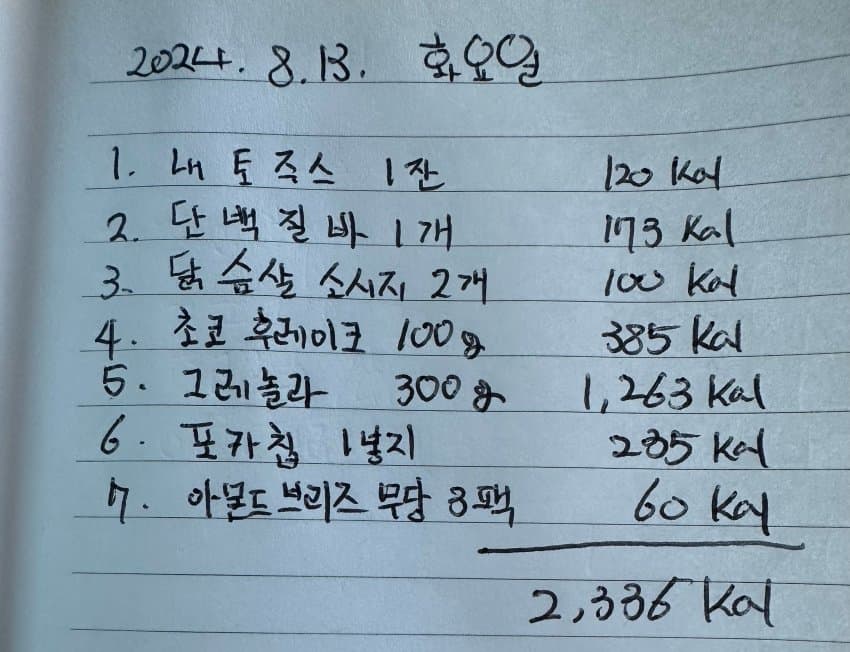 2024. 8. 13. 화요일
1. 내 토 즉스 1잔 120 Kal
2. 단백질바 1개 173 Kal
3. 닭숨살 소시지 2개 100 Kal
4. 초코 후레이크 100g 385 Kal
5. 그레놀라 300g 1,263 Kal
6. 포카칩 1넣지 235 Kal
7. 아몬드브리즈 무당 3팩 60 Kal
2,336 Kal